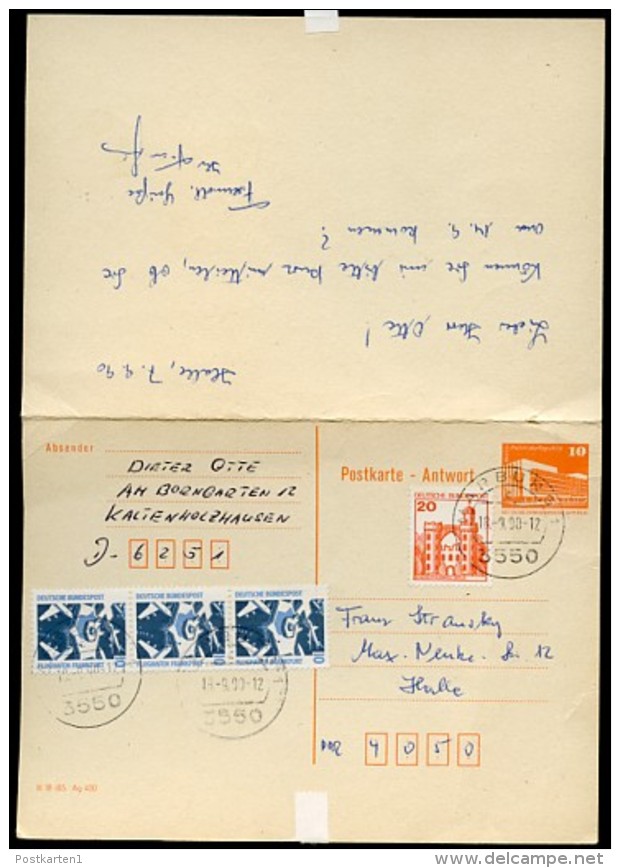 Halle, 7.9.90
Lieber Herr Otte!
Können Sie mir bitte kurz mitteilen, ob Sie
am 14.9. kommen?
Freundl. Grüße
Absender
DIETER OTTE
AM BORNGARTEN 12
KALTENHOLZHAUSEN
D- 6251
Postkarte - Antwort
10
DEUTSCHE BUNDESPOST
20
MARBURG 1
18.-9.90-12
3550
DEUTSCHE BUNDESPOST
DEUTSCHE BUNDESPOST
DEUTSCHE BUNDESPOST
FLUGHAFEN FRANKFURT
FLUGHAFEN FRANKFURT
FLUGHAFEN FRANKFURT
10
10
10
3550
18.-9.90-12
3550
Franz Stransky
Halle
DDR 4050
III 18 185 Ag 400
Postkarten1
delcampe.net